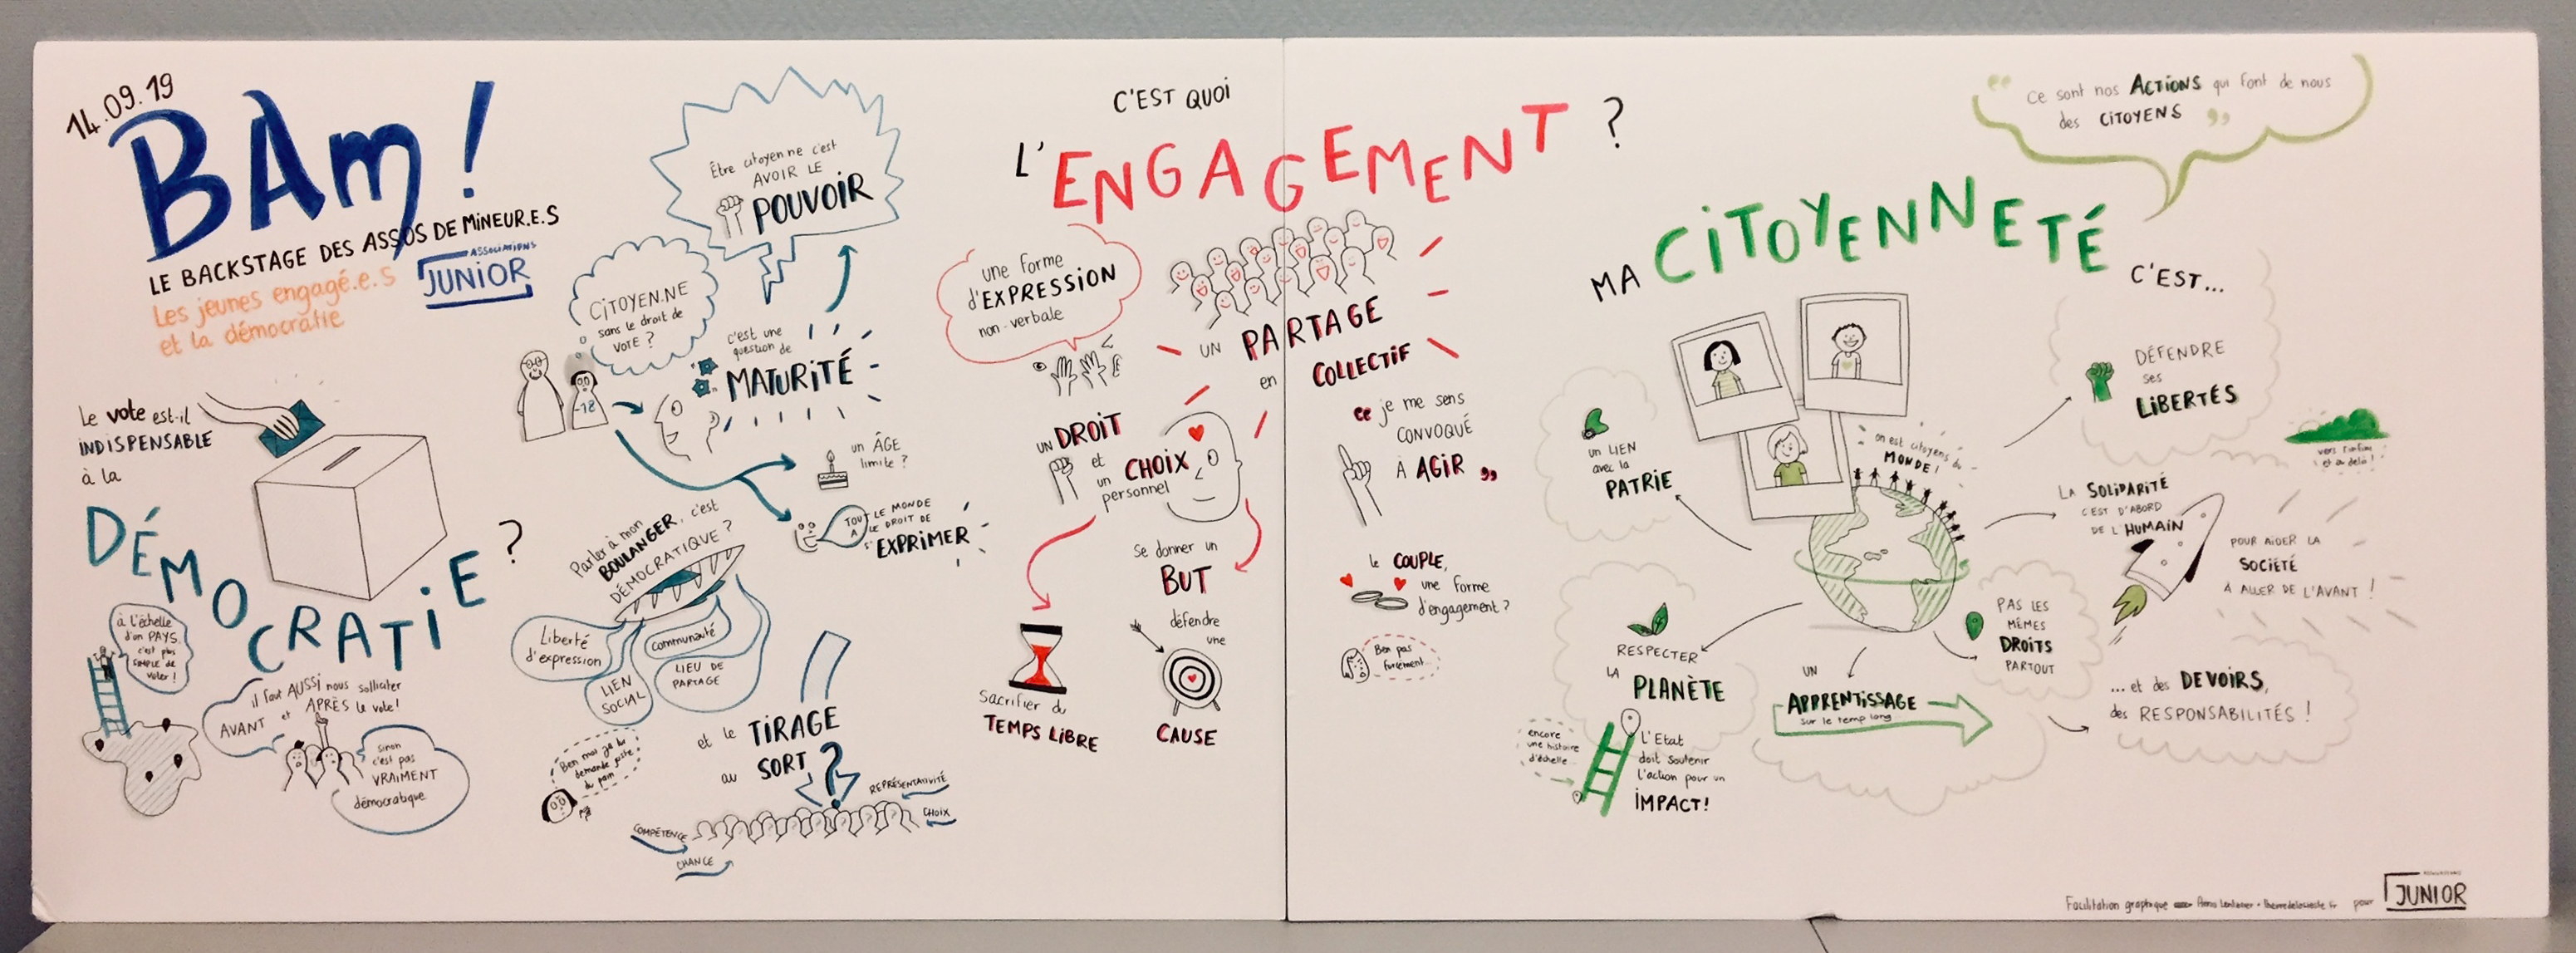 14.09.19
BAM !
LE BACKSTAGE DES ASSOS DE MINEUR.E.S
Les jeunes engagé.e.s
et la démocratie
ASSOCIATIONS
JUNIOR
Le vote est-il
INDISPENSABLE
à la
DÉMOCRATIE ?
à l'échelle
d'un PAYS,
c'est plus
SIMPLE de
voter !
il faut AUSSI nous solliciter
AVANT et APRÈS le vote !
sinon
c'est pas
VRAIMENT
démocratique
Être citoyen·ne c'est
AVOIR LE
POUVOIR
CITOYEN.NE
sans le droit de
VOTE ?
-18
c'est une
question de
MATURITÉ
un ÂGE
limite ?
TOUT LE MONDE
A LE DROIT DE
S'EXPRIMER
Parler à mon
BOULANGER, c'est
DÉMOCRATIQUE ?
Liberté
d'expression
communauté
LIEN
SOCIAL
LIEU DE
PARTAGE
Ben moi j'ai lui
demande juste
du pain
et le TIRAGE
au SORT ?
REPRÉSENTATIVITÉ
CHOIX
COMPÉTENCE
CHANCE
C'EST QUOI
L'ENGAGEMENT ?
une forme
d'EXPRESSION
non-verbale
UN PARTAGE
en COLLECTIF
UN DROIT
et
un CHOIX
personnel
Sacrifier du
TEMPS LIBRE
Se donner un
BUT
défendre
une
CAUSE
“ je me sens
CONVOQUÉ
À AGIR ”
le COUPLE,
une forme
d'engagement ?
Ben pas
forcément...
MA CITOYENNETÉ
C'EST...
“ Ce sont nos ACTIONS qui font de nous
des CITOYENS ”
un LIEN
avec la
PATRIE
on est citoyens du
MONDE !
DÉFENDRE
ses
LIBERTÉS
vers l'infini
et au delà !
LA SOLIDARITÉ
C'EST D'ABORD
DE L'HUMAIN
POUR AIDER LA
SOCIÉTÉ
À ALLER DE L'AVANT !
PAS LES
MÊMES
DROITS
PARTOUT
... et des DEVOIRS,
des RESPONSABILITÉS !
UN
APPRENTISSAGE
sur le temp long
RESPECTER
LA PLANÈTE
encore
une histoire
d'échelle...
L'Etat
doit soutenir
l'action pour un
IMPACT !
Facilitation graphique
pour
JUNIOR